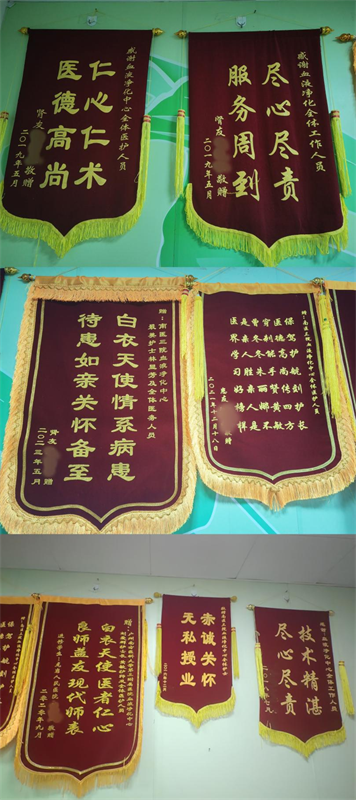 感谢血液净化中心全体医护人员
仁心仁术
医德高尚
肾友 敬赠
二〇一九年五月
感谢血液净化全体工作人员
尽心尽责
服务周到
肾友 敬赠
二〇一九年五月
赠:南医三院血液净化中心
最美护士林盟芳及全体医务人员
白衣天使情系病患
待患如亲关怀备至
肾友 赠
二〇二三年五月
保驾护航刻护长
医德高尚传四方
穿刺能手贤黄敏
曾冬冬朱丽娜不
是亲人胜亲人是
医界学习好榜样
二〇二一年十二月十八日
保驾护航刻护
白衣天使医者仁心
良师益友现代师表
二〇二〇年九月
赤诚关怀
无私授业
技术精湛
尽心尽责